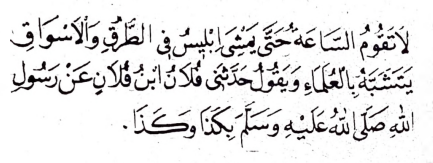 لَا تَقُومُ السَّاعَةُ حَتَّى يَمْشِىَ اِبْلِيسُ فِى الطُّرُقِ وَالْاَسْوَاقِ
يَتَشَبَّهُ بِالْعُلَمَاءِ وَيَقُولُ حَدَّثَنِى فُلَانُ ابْنُ فُلَانٍ عَنْ رَسُولِ
اللهِ صَلَّى اللهُ عَلَيْهِ وَسَلَّمَ بِكَذَا وَكَذَا .